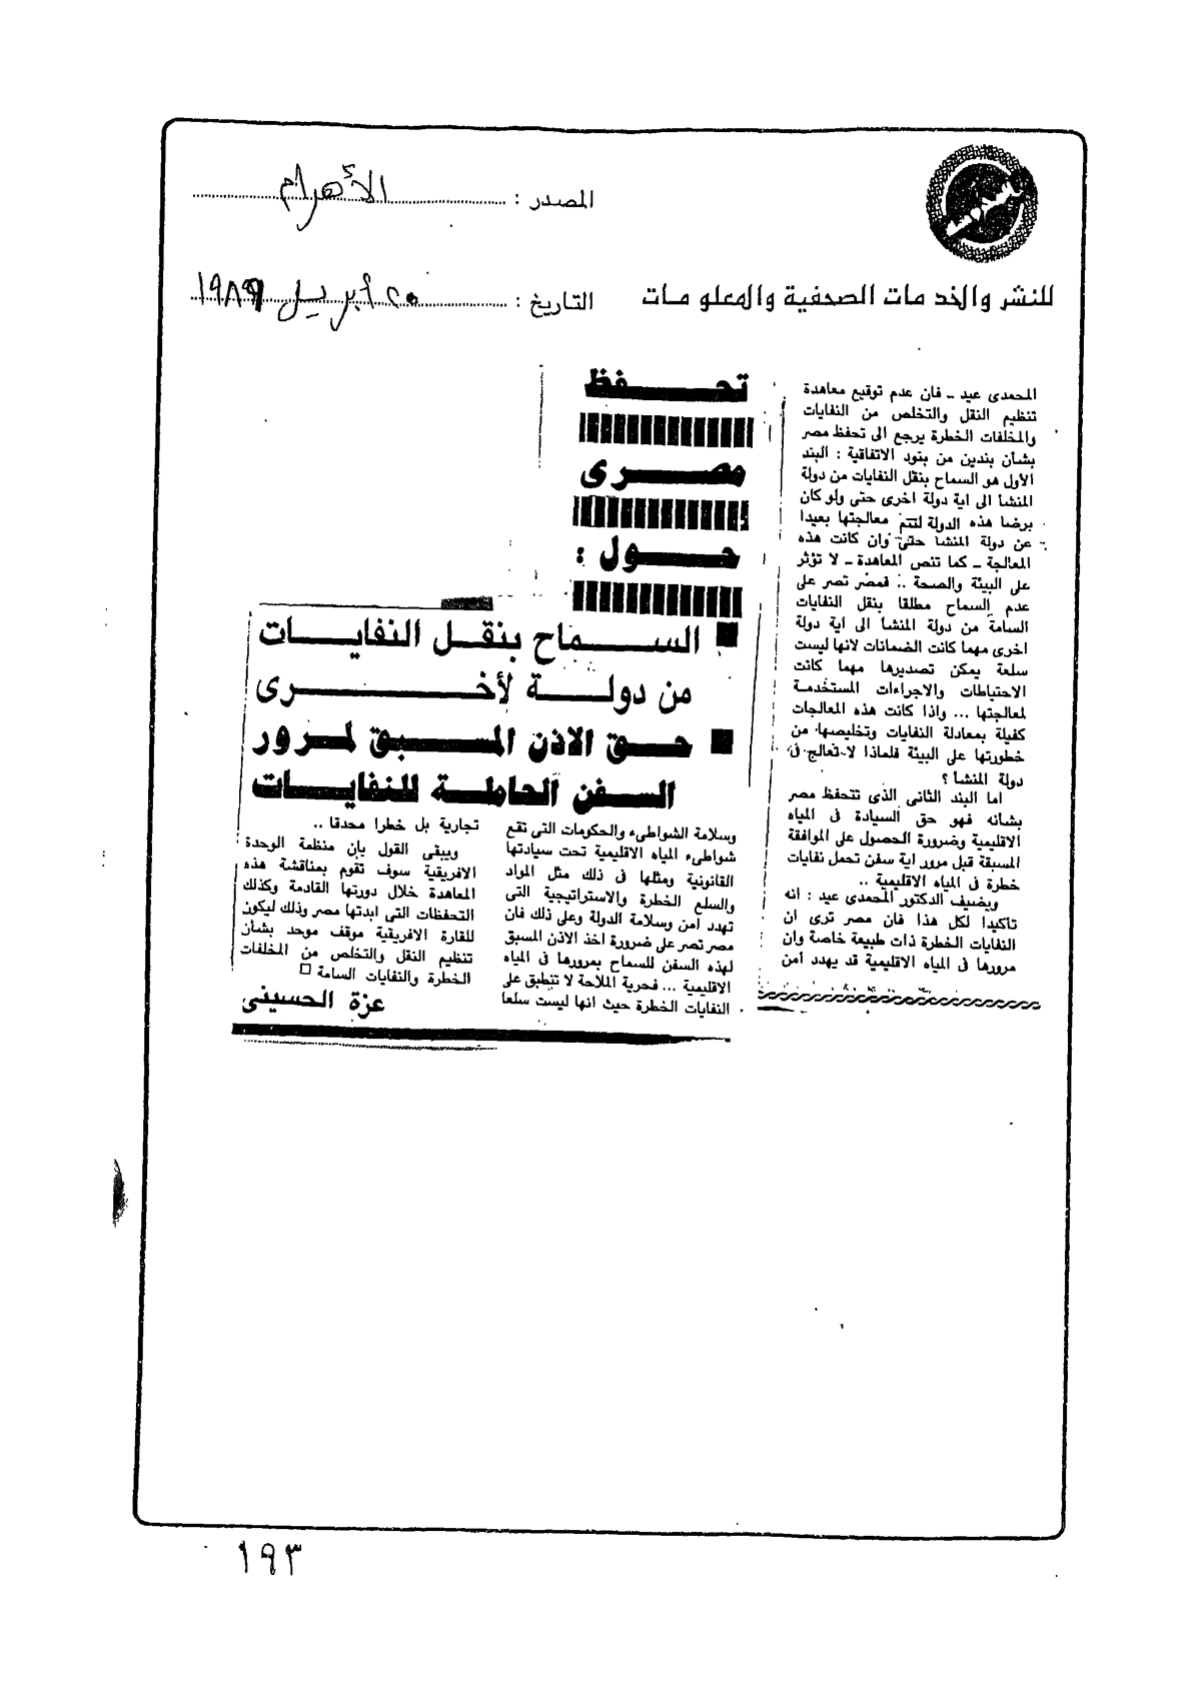 المصدر : الأهرام
للنشر والخدمات الصحفية والمعلومات
التاريخ : ٢٠ أبريل ١٩٨٩
تحفظ
مصرى
حول :
■ السماح بنقل النفايات
من دولة لأخرى
■ حق الاذن المسبق لمرور
السفن الحاملة للنفايات
المحمدى عيد ـ فان عدم توقيع معاهدة
تنظيم النقل والتخلص من النفايات
والمخلفات الخطرة يرجع الى تحفظ مصر
بشأن بندين من بنود الاتفاقية : البند
الأول هو السماح بنقل النفايات من دولة
المنشا الى اية دولة اخرى حتى ولو كان
برضا هذه الدولة لتتم معالجتها بعيدا
عن دولة المنشا حتى وان كانت هذه
المعالجة ـ كما تنص المعاهدة ـ لا تؤثر
على البيئة والصحة .. فمصر تصر على
عدم السماح مطلقا بنقل النفايات
السامة من دولة المنشا الى اية دولة
اخرى مهما كانت الضمانات لانها ليست
سلعة يمكن تصديرها مهما كانت
الاحتياطات والاجراءات المستخدمة
لمعالجتها ... واذا كانت هذه المعالجات
كفيلة بمعادلة النفايات وتخليصها من
خطورتها على البيئة فلماذا لا تعالج فى
دولة المنشأ ؟
اما البند الثانى الذى تتحفظ مصر
بشأنه فهو حق السيادة فى المياه
الاقليمية وضرورة الحصول على الموافقة
المسبقة قبل مرور اية سفن تحمل نفايات
خطرة فى المياه الاقليمية ..
ويضيف الدكتور المحمدى عيد : انه
تأكيدا لكل هذا فان مصر ترى ان
النفايات الخطرة ذات طبيعة خاصة وان
مرورها فى المياه الاقليمية قد يهدد امن
وسلامة الشواطىء والحكومات التى تقع
شواطىء المياه الاقليمية تحت سيادتها
القانونية ومثلها فى ذلك مثل المواد
والسلع الخطرة والاستراتيجية التى
تهدد امن وسلامة الدولة وعلى ذلك فان
مصر تصر على ضرورة اخذ الاذن المسبق
لهذه السفن للسماح بمرورها فى المياه
الاقليمية ... فحرية الملاحة لا تنطبق على
النفايات الخطرة حيث انها ليست سلعا
تجارية بل خطرا محدقا ..
ويبقى القول بإن منظمة الوحدة
الافريقية سوف تقوم بمناقشة هذه
المعاهدة خلال دورتها القادمة وكذلك
التحفظات التى ابدتها مصر وذلك ليكون
للقارة الافريقية موقف موحد بشأن
تنظيم النقل والتخلص من المخلفات
الخطرة والنفايات السامة □
عزة الحسينى
١٩٣